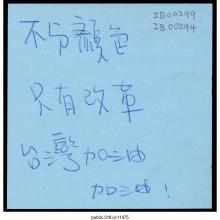 IB00299
IB00294
不分顏色
只有改革
台灣加油
加油!
public.318.io/11475